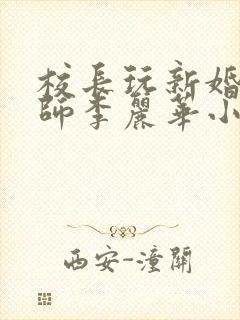 校長玩新婚
師李麗華小
西安-潼關